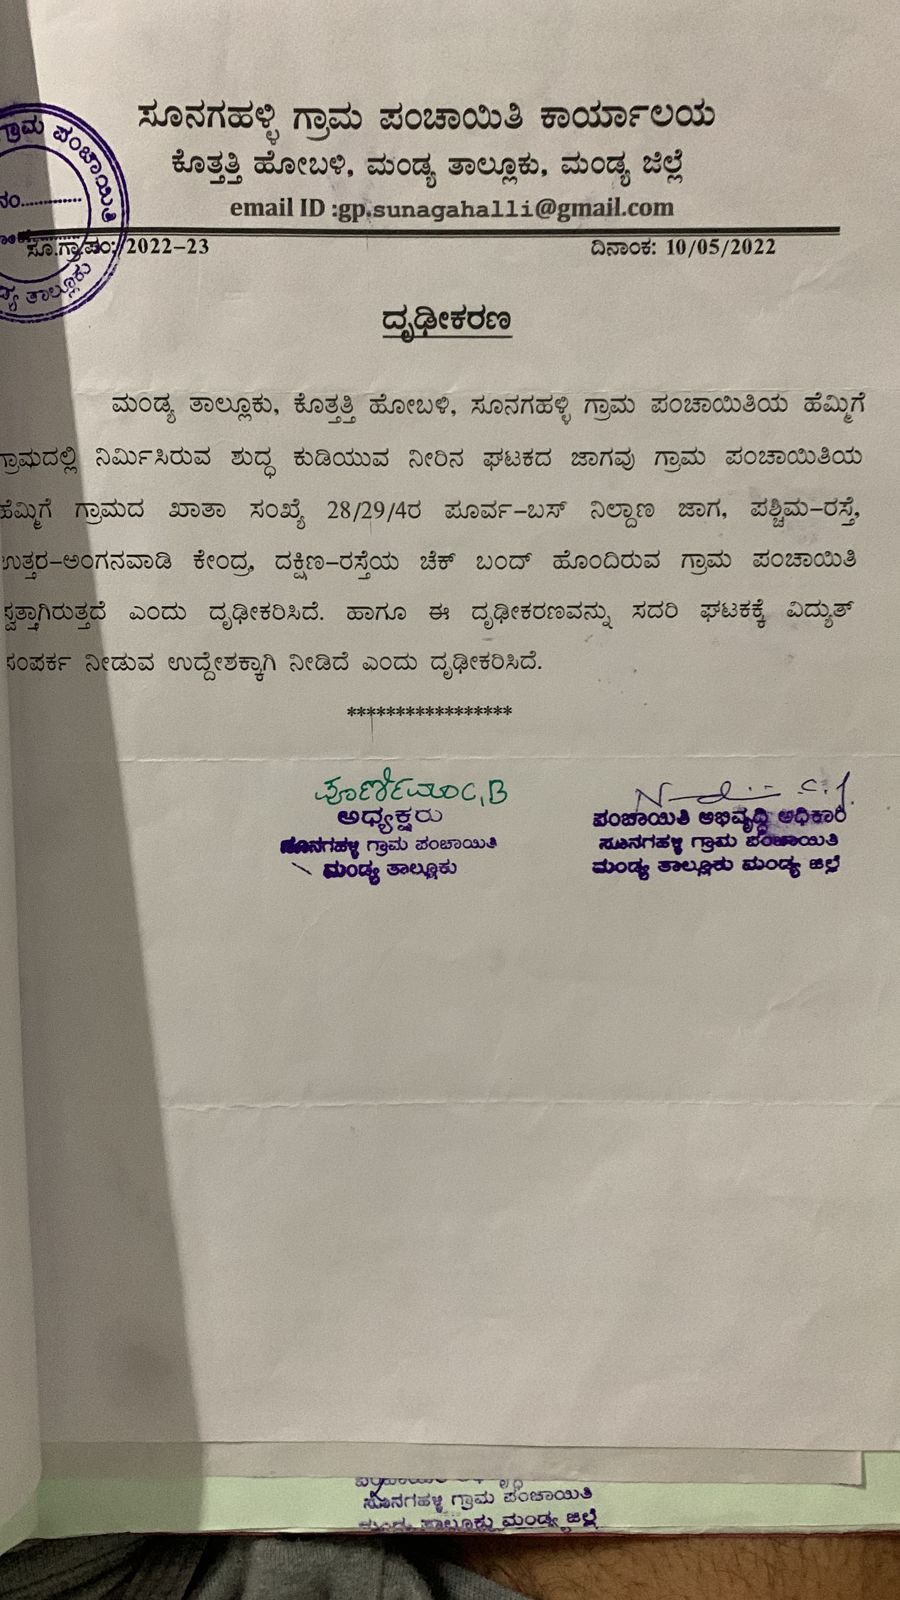 ಸೂನಗಹಳ್ಳಿ ಗ್ರಾಮ ಪಂಚಾಯಿತಿ ಕಾರ್ಯಾಲಯ
ಕೊತ್ತತ್ತಿ ಹೋಬಳಿ, ಮಂಡ್ಯ ತಾಲ್ಲೂಕು, ಮಂಡ್ಯ ಜಿಲ್ಲೆ
email ID :gp.sunagahalli@gmail.com
ಗ್ರಾಮ ಪಂಚಾಯಿತಿ
ನಂ.............
ತಾಲ್ಲೂಕು
ಸೂ.ಗ್ರಾ.ಪಂ: 2022-23 ದಿನಾಂಕ: 10/05/2022
ದೃಢೀಕರಣ
ಮಂಡ್ಯ ತಾಲ್ಲೂಕು, ಕೊತ್ತತ್ತಿ ಹೋಬಳಿ, ಸೂನಗಹಳ್ಳಿ ಗ್ರಾಮ ಪಂಚಾಯಿತಿಯ ಹೆಮ್ಮಿಗೆ
ಗ್ರಾಮದಲ್ಲಿ ನಿರ್ಮಿಸಿರುವ ಶುದ್ಧ ಕುಡಿಯುವ ನೀರಿನ ಘಟಕದ ಜಾಗವು ಗ್ರಾಮ ಪಂಚಾಯಿತಿಯ
ಹೆಮ್ಮಿಗೆ ಗ್ರಾಮದ ಖಾತಾ ಸಂಖ್ಯೆ 28/29/4ರ ಪೂರ್ವ-ಬಸ್ ನಿಲ್ದಾಣ ಜಾಗ, ಪಶ್ಚಿಮ-ರಸ್ತೆ,
ಉತ್ತರ-ಅಂಗನವಾಡಿ ಕೇಂದ್ರ, ದಕ್ಷಿಣ-ರಸ್ತೆಯ ಚೆಕ್ ಬಂದ್ ಹೊಂದಿರುವ ಗ್ರಾಮ ಪಂಚಾಯಿತಿ
ಸ್ವತ್ತಾಗಿರುತ್ತದೆ ಎಂದು ದೃಢೀಕರಿಸಿದೆ. ಹಾಗೂ ಈ ದೃಢೀಕರಣವನ್ನು ಸದರಿ ಘಟಕಕ್ಕೆ ವಿದ್ಯುತ್
ಸಂಪರ್ಕ ನೀಡುವ ಉದ್ದೇಶಕ್ಕಾಗಿ ನೀಡಿದೆ ಎಂದು ದೃಢೀಕರಿಸಿದೆ.
*****************
ಪೂರ್ಣಿಮಾ C,B
ಅಧ್ಯಕ್ಷರು
ಸೂನಗಹಳ್ಳಿ ಗ್ರಾಮ ಪಂಚಾಯಿತಿ
ಮಂಡ್ಯ ತಾಲ್ಲೂಕು
ಪಂಚಾಯಿತಿ ಅಭಿವೃದ್ಧಿ ಅಧಿಕಾರಿ
ಸೂನಗಹಳ್ಳಿ ಗ್ರಾಮ ಪಂಚಾಯಿತಿ
ಮಂಡ್ಯ ತಾಲ್ಲೂಕು ಮಂಡ್ಯ ಜಿಲ್ಲೆ
ಸೂನಗಹಳ್ಳಿ ಗ್ರಾಮ ಪಂಚಾಯಿತಿ
ಮಂಡ್ಯ ತಾಲ್ಲೂಕು ಮಂಡ್ಯ ಜಿಲ್ಲೆ